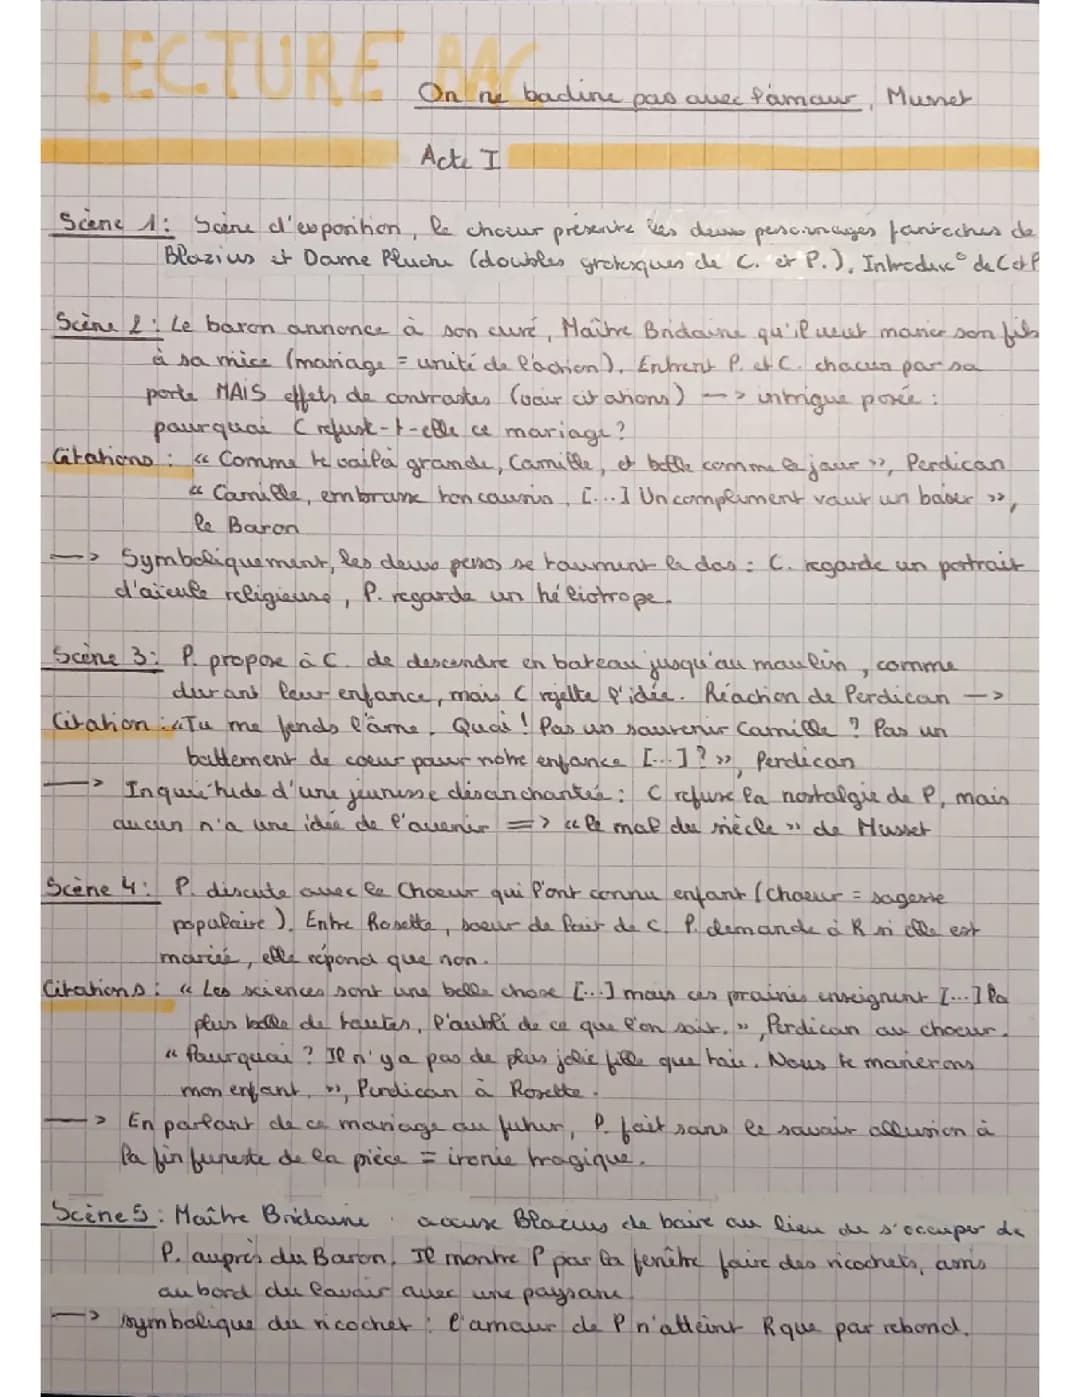 LECTURE BAC
On ne badine pas avec l'amour, Musset
Acte I
Scène 1: Scène d'exposition, le choeur présente les deux personnages fantoches de
Blazius et Dame Pluche (doubles grotesques de C. et P.). Introduc° de C et P
Scène 2: Le baron annonce à son curé, Maître Bridaine qu'il veut marier son fils
à sa nièce (mariage = unité de l'action). Entrent P. et C. chacun par sa
porte MAIS effets de contrastes (voir citations) --> intrigue posée :
pourquoi C refuse-t-elle ce mariage?
Citations : « Comme te voilà grande, Camille, et belle comme le jour », Perdican
« Camille, embrasse ton cousin. [...] Un compliment vaut un baiser »,
le Baron
--> Symboliquement, les deux persos se tournent le dos : C. regarde un portrait
d'aïeule religieuse, P. regarde un héliotrope.
Scène 3: P. propose à C. de descendre en bateau jusqu'au moulin, comme
durant leur enfance, mais C rejette l'idée. Réaction de Perdican -->
Citation : « Tu me fends l'âme. Quoi ! Pas un souvenir Camille ? Pas un
battement de coeur pour notre enfance [...] ? », Perdican
--> Inquiétude d'une jeunesse désenchantée : C refuse la nostalgie de P, mais
aucun n'a une idée de l'avenir => « le mal du siècle » de Musset
Scène 4: P. discute avec le Choeur qui l'ont connu enfant (Choeur = sagesse
populaire). Entre Rosette, soeur de lait de C. P. demande à R si elle est
mariée, elle répond que non.
Citations : « Les sciences sont une belle chose [...] mais ces prairies enseignent [...] la
plus belle de toutes, l'oubli de ce que l'on sait. », Perdican au choeur.
« Pourquoi ? Il n'y a pas de plus jolie fille que toi. Nous te marierons
mon enfant. », Perdican à Rosette.
--> En parlant de ce mariage au futur, P. fait sans le savoir allusion à
la fin funeste de la pièce = ironie tragique.
Scène 5: Maître Bridaine accuse Blazius de boire au lieu de s'occuper de
P. auprès du Baron. Il montre P par la fenêtre faire des ricochets, assis
au bord du lavoir avec une paysanne.
--> symbolique du ricochet : l'amour de P n'atteint R que par rebond.